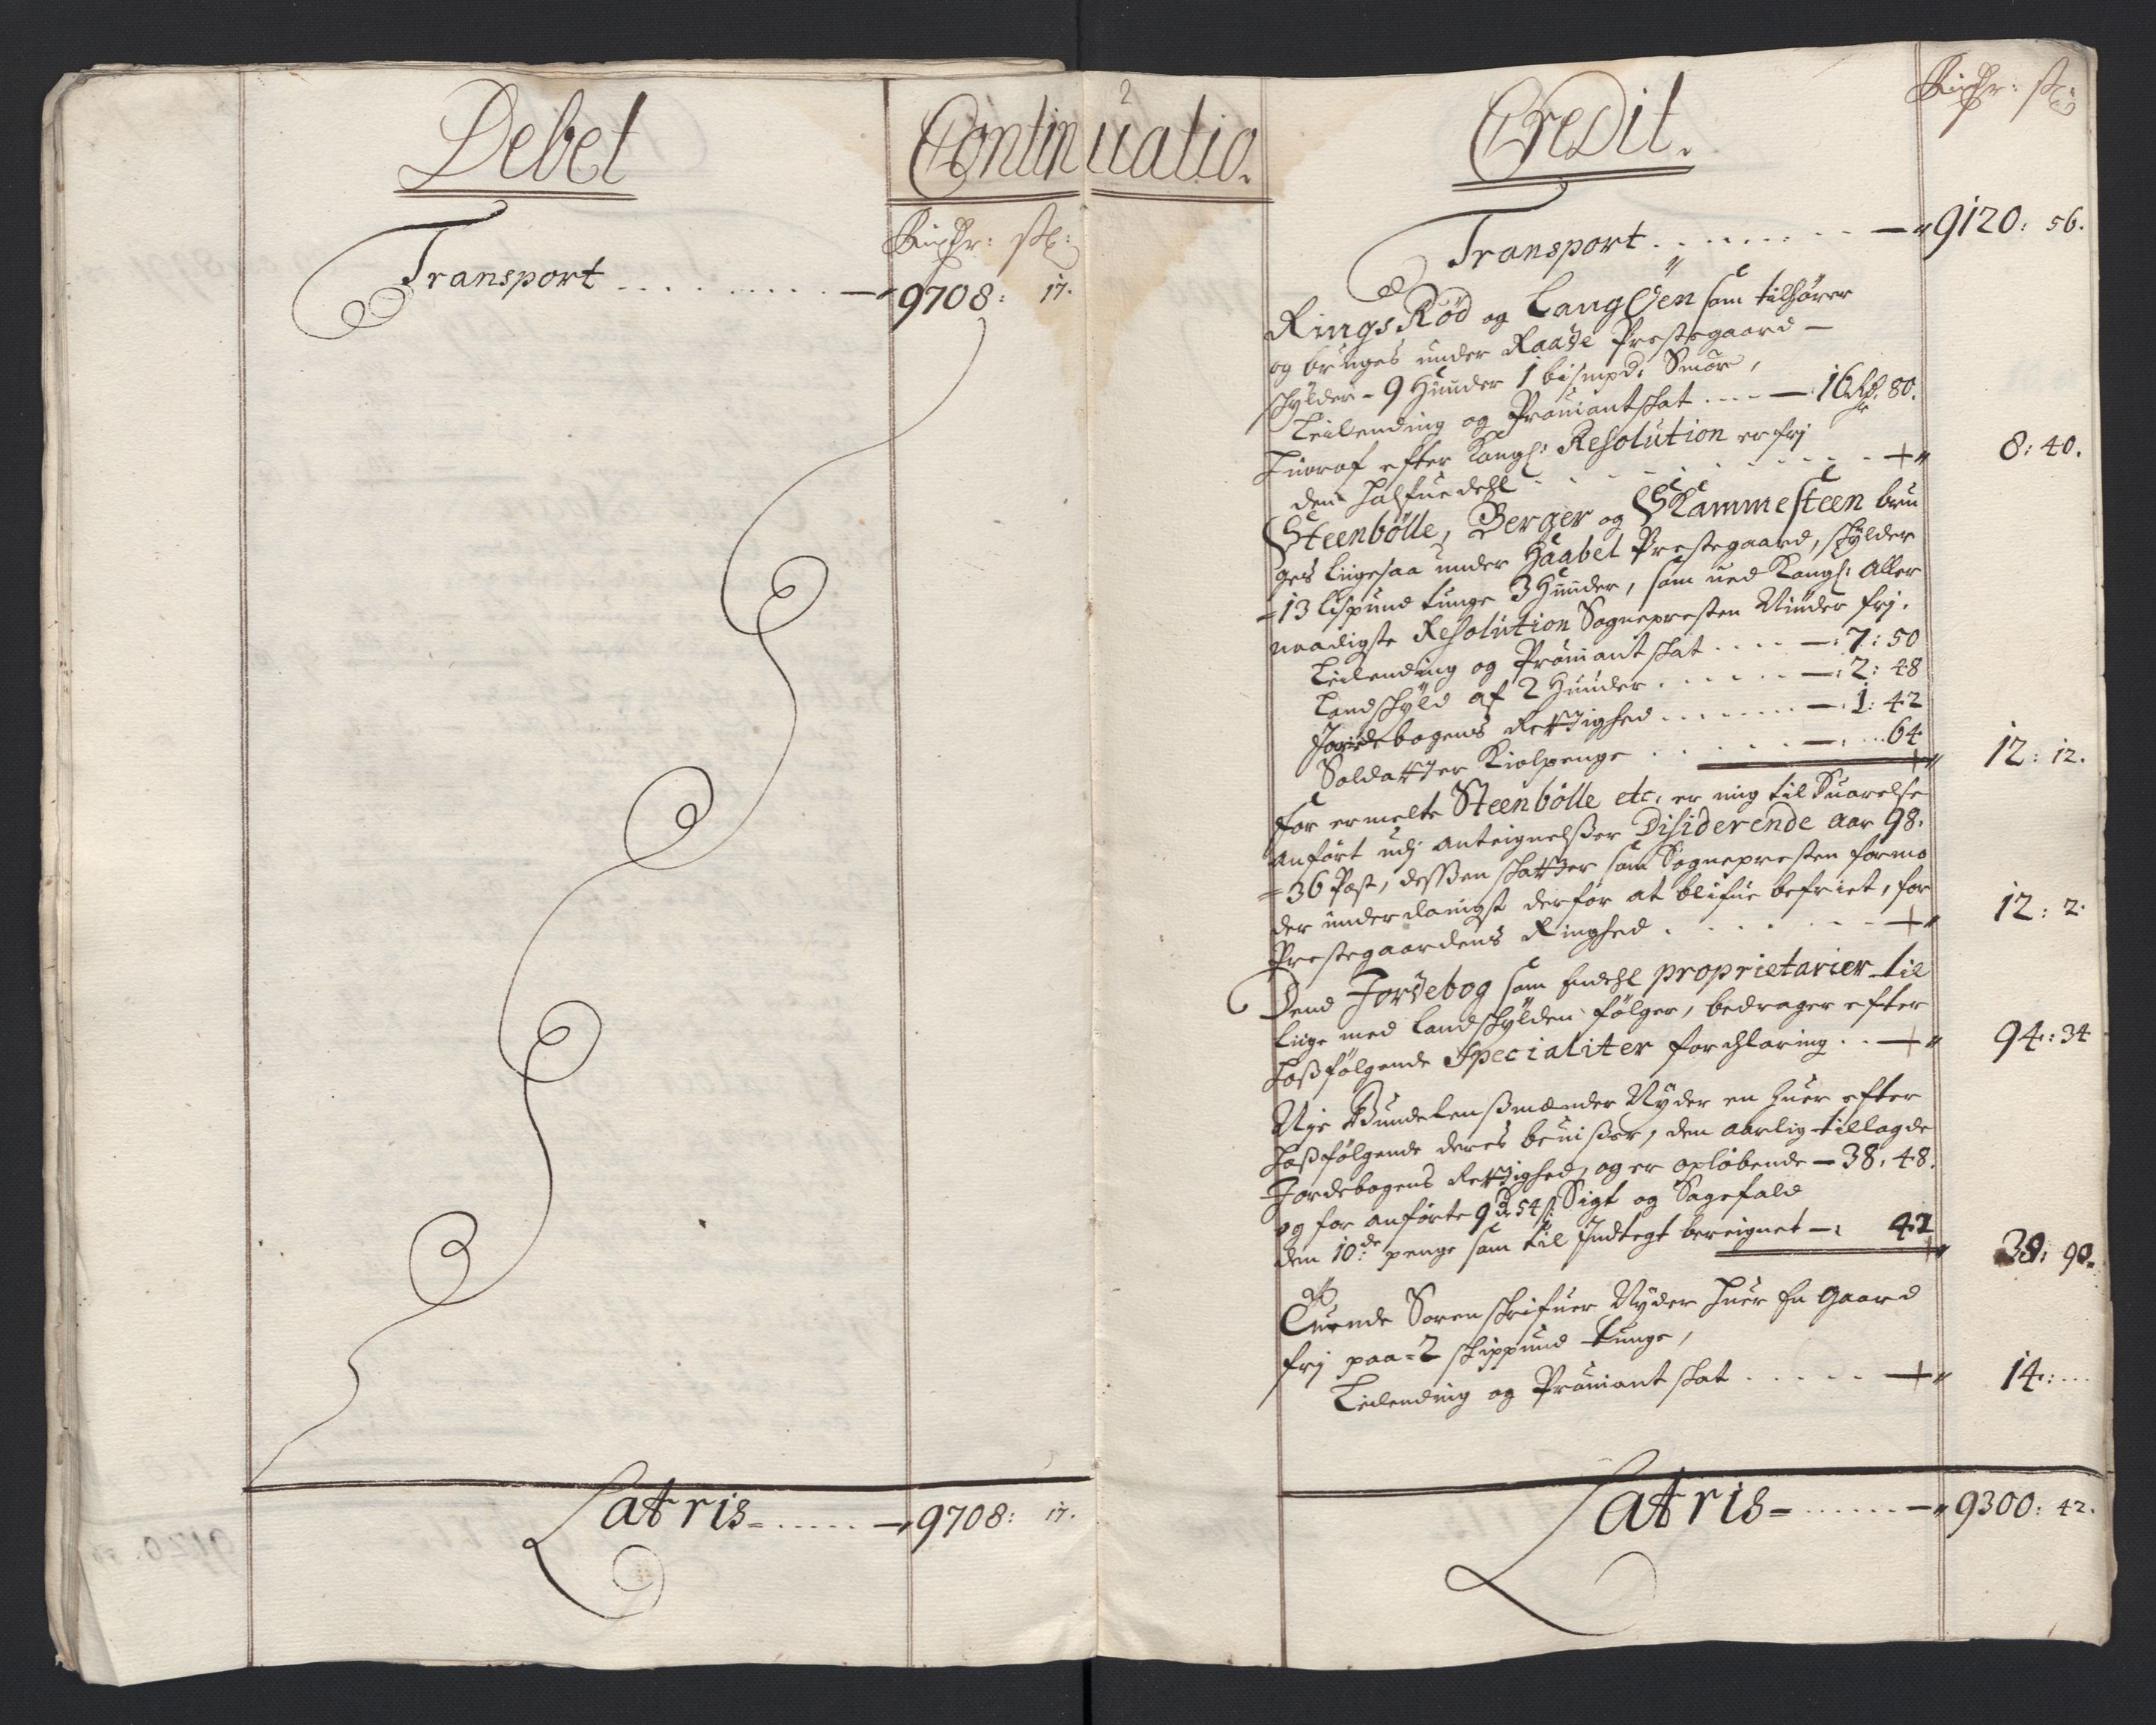 Debet
Continuatio.
Rixdr: sk:
Transport - 9708: 17.
Latris - 9708: 17.
Credit.
Rixdr: sk:
Transport - 9120: 56.
RingsRöd og Langöen som tilhörer
og bruges under Raade Prestegaard -
skylder - 9 Huuder 1 bismpd: Smör,
Leilending og Proviantskat - 16 Rdr. 80.
huoraf efter Kongl: Resolution er frj
den halfue dehl - 8: 40.
Steenbölle, Berger og Skammesteen bru
ges liigesaa under Haabel Prestegaard, skylder
= 13 Lispund tunge 3 Huuder, som ued Kongl: Aller
naadigste Resolution Sognepresten Niuder frj.
Leilending og Proviantskat - 7: 50
Landskyld af 2 Huuder - 2: 48
Jordebogens Rettighed - 1: 42
Soldatter Kiolpenge - 64
12: 12.
for ermelte Steenbölle etc: er mig til Suarelse
anfört udj anteignelsser Disiderende aar 98.
= 36 Post, dessen skatter som Sognepresten formo
der underdanigst derfor at blifue befriet, for
Prestegaardens Ringhed - 12: 2.
Dend Jordebog som Endehl proprietarier til
liige med Landskylden fölger, bedrager efter
hosfölgende Specialiter forchlaring - 94: 34
Nye Bundelensmænder Nyder en huer efter
hosfölgende deres beuisser, den aarlig tillagde
Jordebogens Rettighed, og er oplöbende - 38. 48.
og for anförte 9 Rdr 54 s: Sigt og Sagefald
den 10de penge som til Indtegt bereignet - 42
38: 90.
Tuende Sorenskrifuer Nyder huer En gaard
frj paa = 2 skippund tunge,
Leilending og Proviantskat - 14: ...
Latris = - 9300: 42.